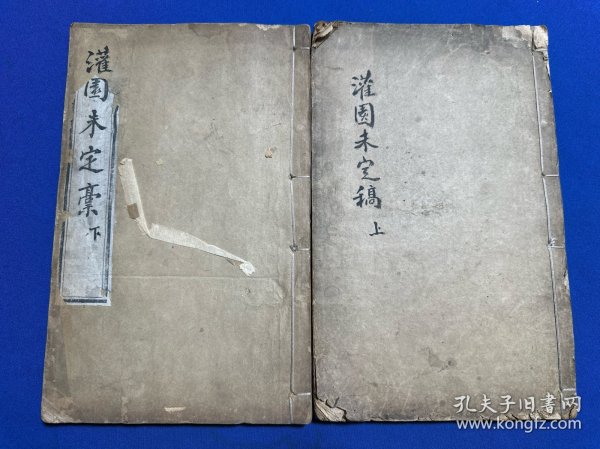 灌園未定稾 下
灌園未定稿 上
孔夫子旧書网
www.kongfz.com